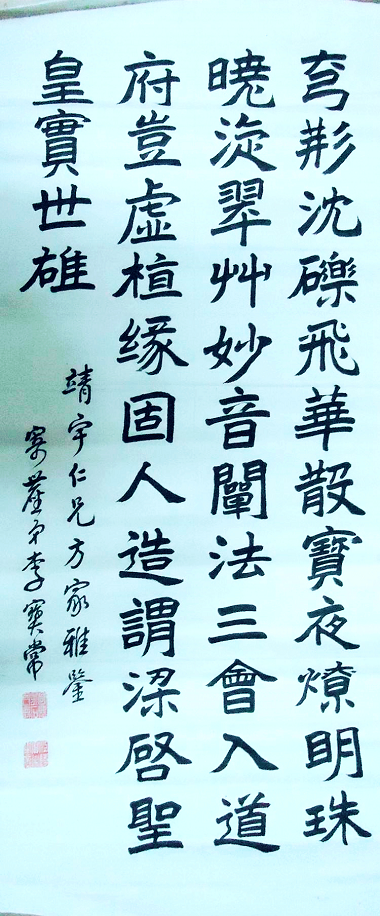 穹形沈礫飛華散寶夜燎明珠
曉漩翠艸妙音闡法三會入道
府豈虛植緣固人造謂梁啓聖
皇實世雄
靖宇仁兄方家雅鑒
弟李寶常